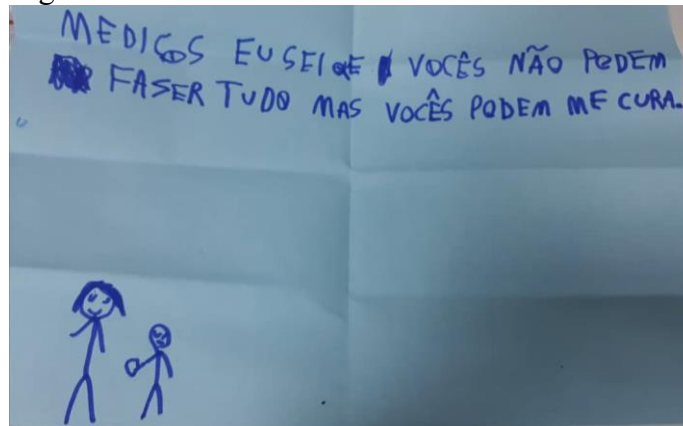 MEDICOS EU SEI QE VOCÊS NÃO PODEM
FASER TUDO MAS VOCÊS PODEM ME CURA.